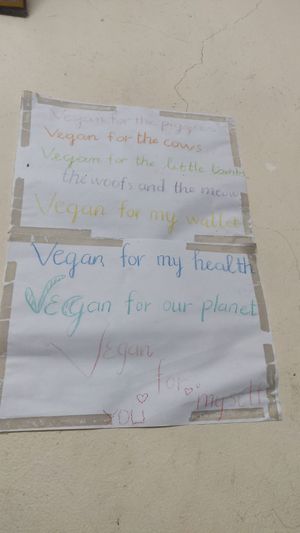 Vegan for the piggies
Vegan for the cows
Vegan for the little lambs
the woofs and the meows
Vegan for my wallet
Vegan for my health
Vegan for our planet
Vegan
for
myself
YOU